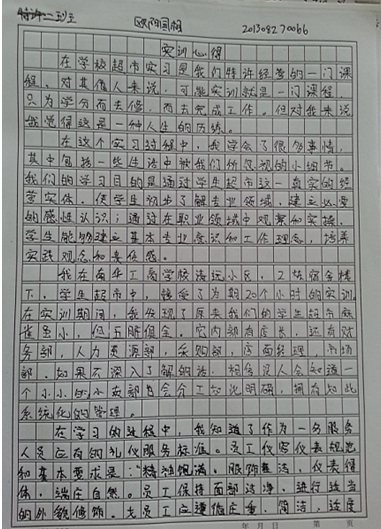 特许二班
201308270066
实训心得
在学校超市实习是我们特许经营的一门课
程。对其他人来说,可能实训就是一门课程,
只为学分而去修,而去完成工作。但对我来说
我觉得这是一种人生的历练。
在这个实习过程中,我学会了很多事情,
其中包括一些生活中被我们所忽视的小细节。
我们的学习目的是通过学生超市这一真实的经
营实体,使学生初步了解专业领域,建立必要
的感性认识;通过在职业领域中观察和实操,
学生能够建立基本专业意识和工作理念,培养
实践观念和责任感。
我在南华工商学校清远小区,2栋宿舍楼
下,学生超市中,接受了为期20个小时的实训。
在实训期间,我发现了原来我们的学生超市麻
雀虽小,但五脏俱全。室内部有店长,还有财
务部,人力资源部,采购部,店面经理,市场
部。如果不深入了解的话,相信没人会知道一
个小小的小卖部都会分工如此明确,拥有如此
系统化的管理。
在学习的过程中,我知道了作为一名服务
人员应有的礼仪服务标准。员工仪容仪表规范
和基本要求是:"精神饱满,服饰整洁,仪表得
体,端庄自然。员工保持面部洁净,进行适当
的外貌修饰。女员工应遵循庄重,简洁,适度
年 月 日 第 页